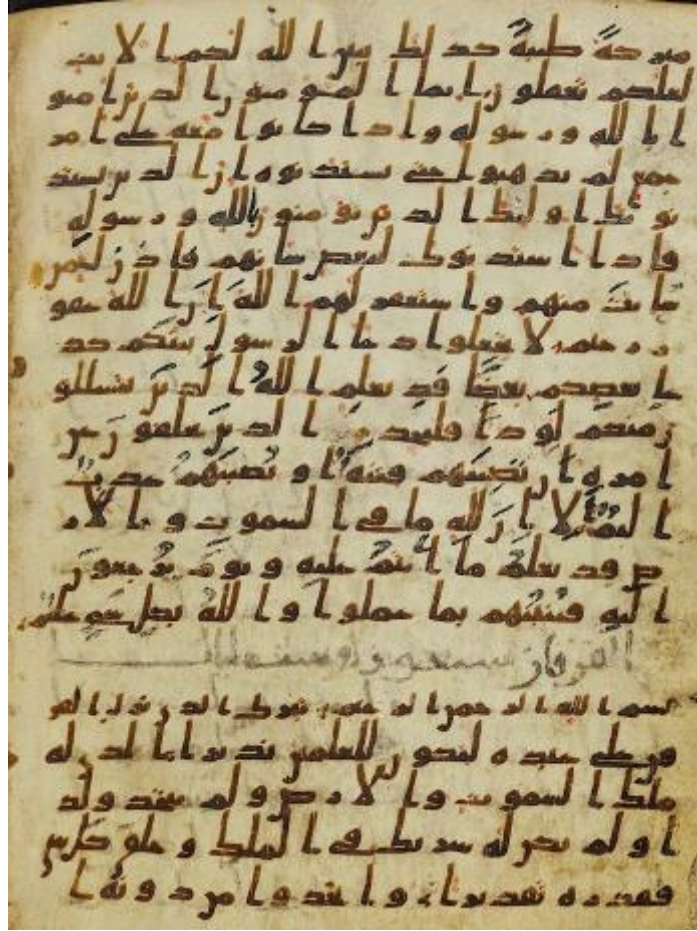 مبركة طيبة كذلك يبين الله لكم الايت
لعلكم تعقلون انما المومنون الذين امنو
ا بالله ورسوله واذا كانوا معه على امر
جمع لم يذهبوا حتى يستذنوه ان الذين يستذ
نونك اولئك الذين يومنون بالله ورسوله
فاذا استذنوك لبعض شانهم فاذن لمن
شئت منهم واستغفر لهم الله ان الله غفو
ر رحيم لا تجعلوا دعا الرسول بينكم كد
عا بعضكم بعضا قد يعلم الله الذين يتسللو
ن منكم لواذا فليحذر الذين يخلفون عن
امره ان تصيبهم فتنة او تصيبهم عذب
اليم الا ان لله ما في السموت والار
ض قد يعلم ما انتم عليه ويوم يرجعون
اليه فينبيهم بما عملوا والله بكل شي عليم
الفرقان سبعون و
بسم الله الرحمن الرحيم تبرك الذي نزل الفر
قن على عبده ليكون للعلمين نذيرا الذي له
ملك السموت والارض ولم يتخذ ولد
ا ولم يكن له شريك في الملك وخلق كل شي
فقدره تقديرا واتخذوا من دونه ا